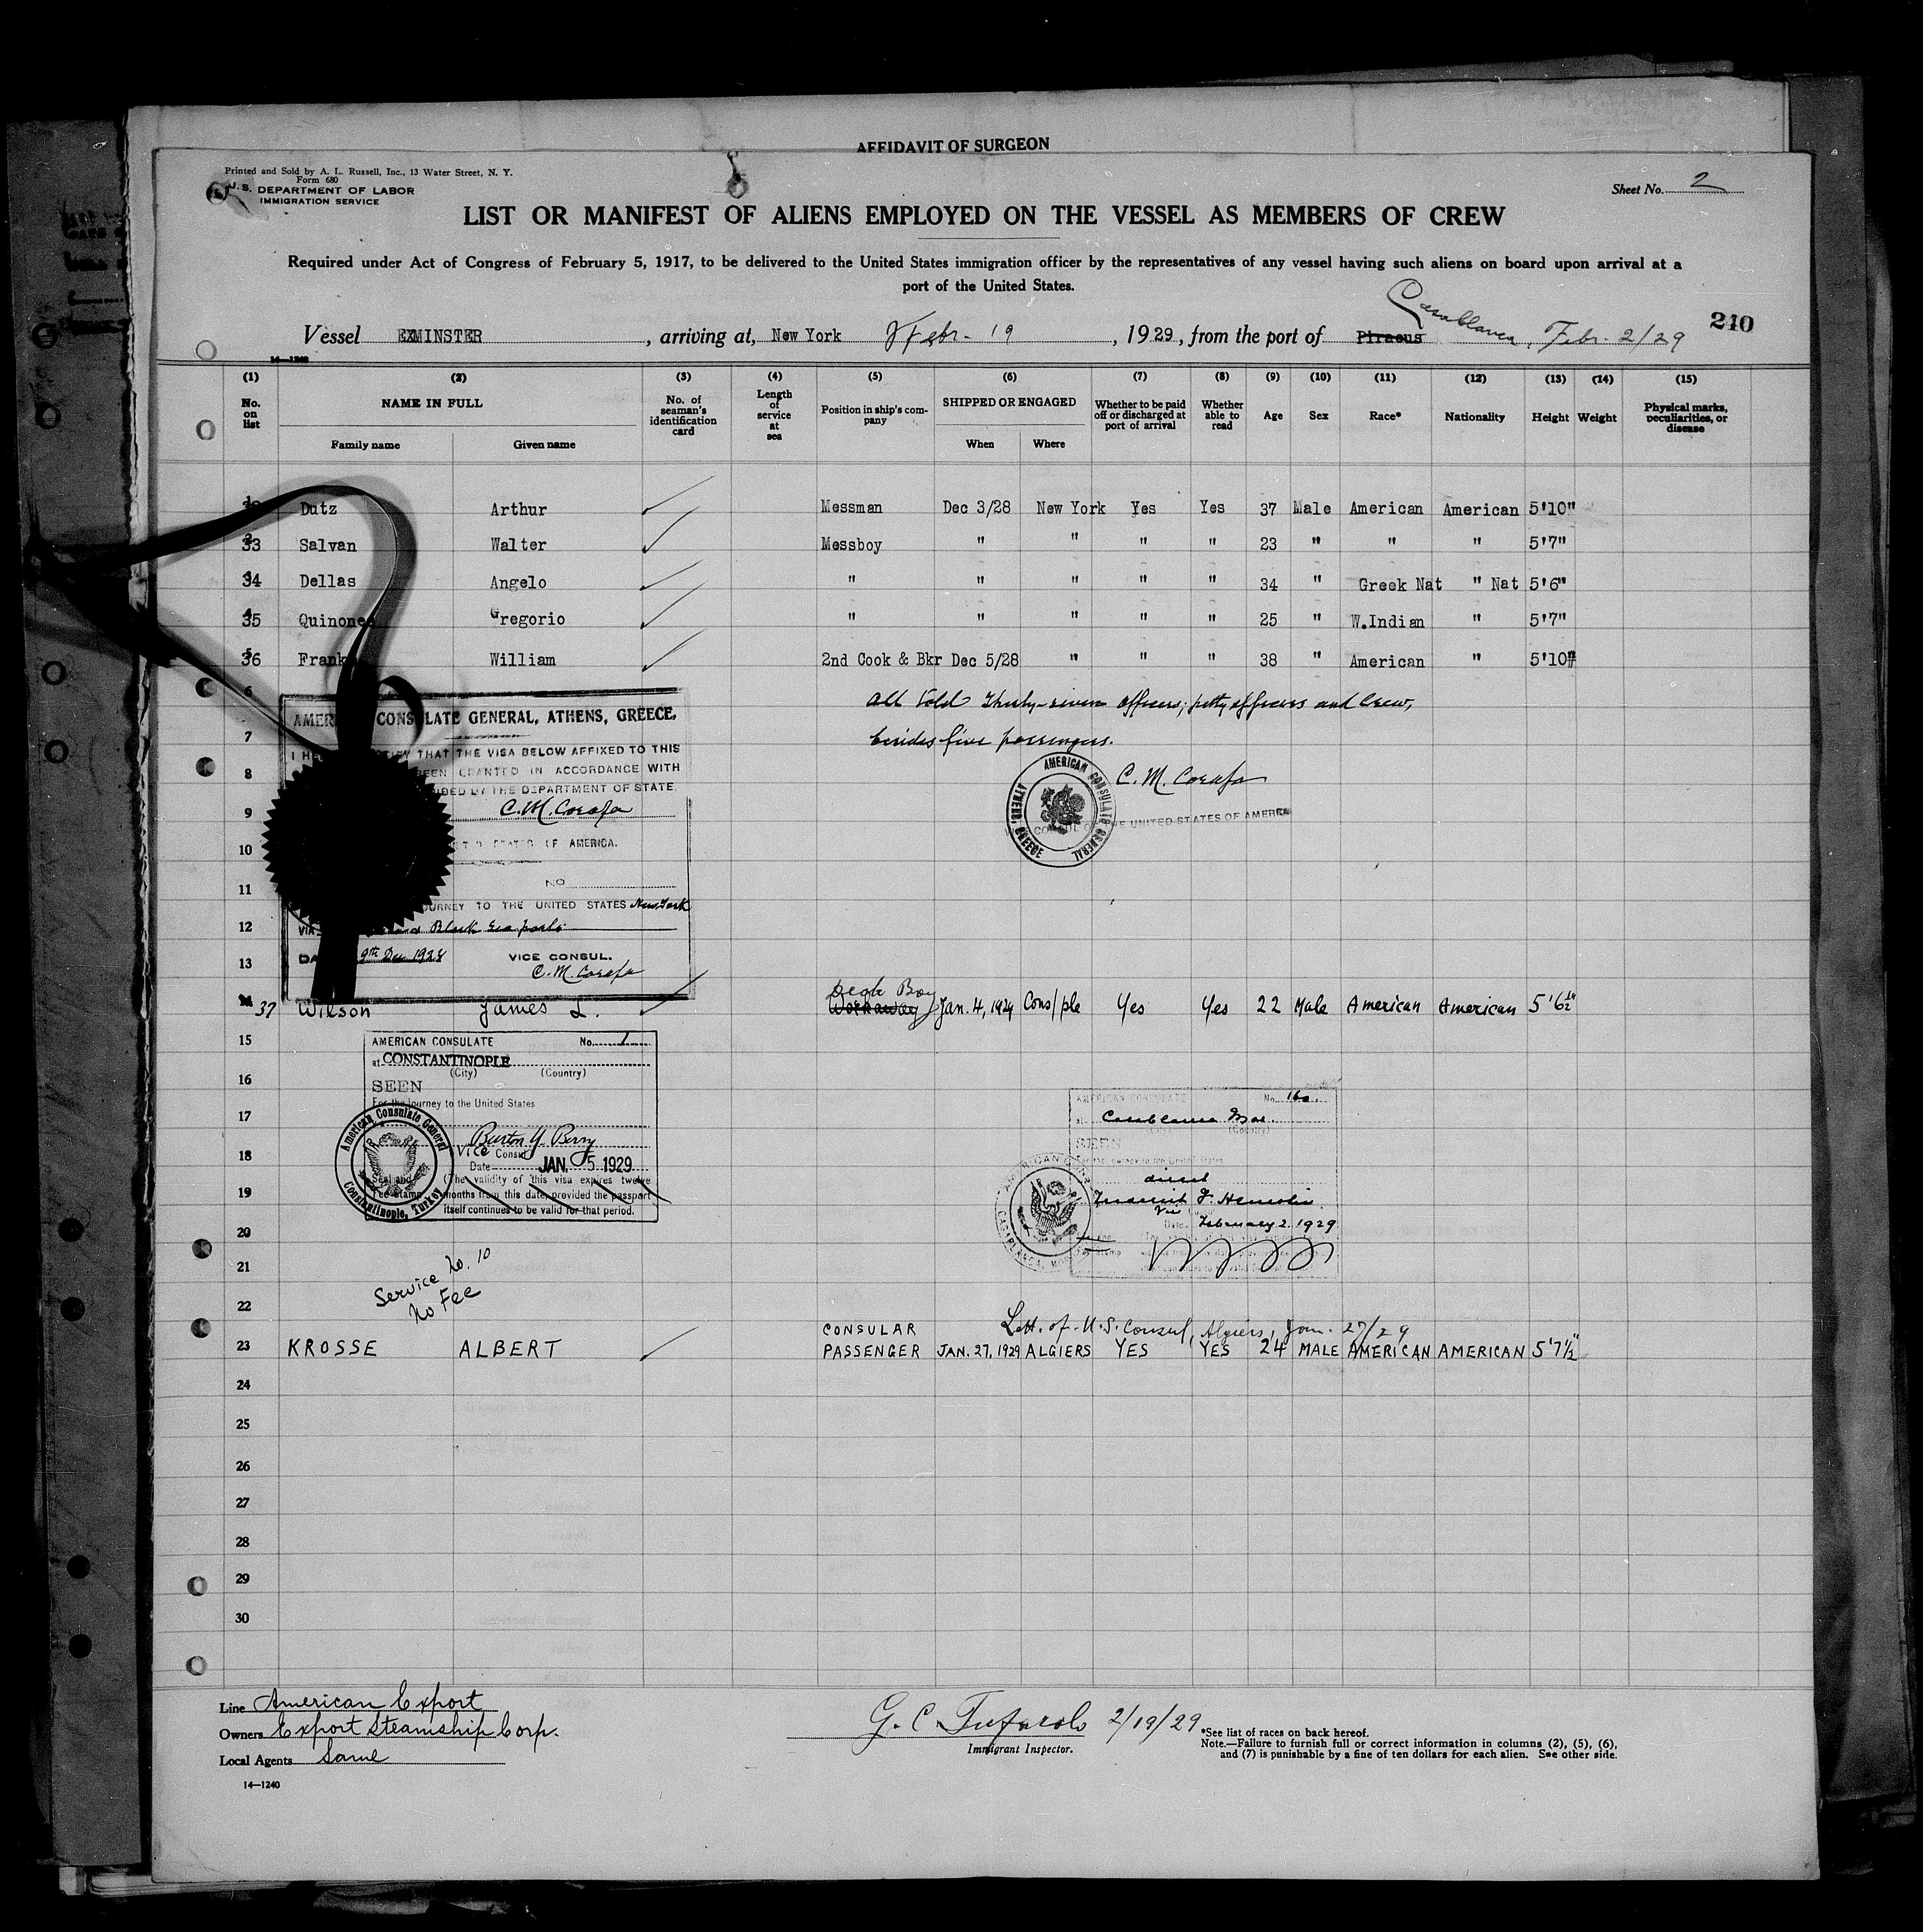 AFFIDAVIT OF SURGEON
Printed and Sold by A. L. Russell, Inc., 13 Water Street, N. Y.
Form 680
U. S. DEPARTMENT OF LABOR
IMMIGRATION SERVICE
Sheet No. 2
LIST OR MANIFEST OF ALIENS EMPLOYED ON THE VESSEL AS MEMBERS OF CREW
Required under Act of Congress of February 5, 1917, to be delivered to the United States immigration officer by the representatives of any vessel having such aliens on board upon arrival at a
port of the United States.
Vessel EXMINSTER, arriving at, New York Febr. 19, 1929, from the port of Piraeus Casablanca, Febr. 2/29
240
14—1240
(1) (2) (3) (4) (5) (6) (7) (8) (9) (10) (11) (12) (13) (14) (15)
No. on list NAME IN FULL Family name Given name No. of seaman's identification card Length of service at sea Position in ship's company SHIPPED OR ENGAGED When Where Whether to be paid off or discharged at port of arrival Whether able to read Age Sex Race* Nationality Height Weight Physical marks, peculiarities, or disease
1 Dutz Arthur Messman Dec 3/28 New York Yes Yes 37 Male American American 5'10"
33 Salvan Walter Messboy " " " " 23 " " " 5'7"
34 Dellas Angelo " " " " " 34 " Greek Nat " Nat 5'6"
35 Quinones Gregorio " " " " " 25 " W.Indian " 5'7"
36 Frank William 2nd Cook & Bkr Dec 5/28 " " " 38 " American " 5'10"
6
All told Thirty-seven officers, petty officers and Crew,
besides five passengers.
C. M. Corafa
AMERICAN CONSULATE GENERAL ATHENS, GREECE
CONSUL OF THE UNITED STATES OF AMERICA
AMERICAN CONSULATE GENERAL, ATHENS, GREECE.
THAT THE VISA BELOW AFFIXED TO THIS
BEEN GRANTED IN ACCORDANCE WITH
BY THE DEPARTMENT OF STATE.
C. M. Corafa
STATES OF AMERICA.
NO
JOURNEY TO THE UNITED STATES New York
VIA Black Sea ports
9th Dec 1928 VICE CONSUL.
C. M. Corafa
7
8
9
10
11
12
13
37 Wilson James L. Deck Boy Workaway Jan. 4, 1929 Cons/ple Yes Yes 22 Male American American 5'6½"
15
16
17
18
19
20
21
22
AMERICAN CONSULATE No. 1
at CONSTANTINOPLE
(City) (Country)
SEEN
For the journey to the United States
Burton Y. Berry
Vice Consul
Date JAN. 5 1929
Seal and Fee Stamp
(The validity of this visa expires twelve
months from this date, provided the passport
itself continues to be valid for that period.
American Consulate General Constantinople, Turkey
Service No. 10
No Fee
AMERICAN CONSULATE No. 160
at Casablanca Mor.
(Country)
SEEN
For the journey to the United States
direct
Vice
Date February 2. 1929
Lett. of U.S. Consul, Algiers, Jan. 27/29
23 KROSSE ALBERT CONSULAR PASSENGER JAN. 27, 1929 ALGIERS YES YES 24 MALE AMERICAN AMERICAN 5'7½"
24
25
26
27
28
29
30
Line American Export
Owners Export Steamship Corp.
Local Agents Same
14—1240
G. C. Tufarolo 2/19/29
Immigrant Inspector.
*See list of races on back hereof.
Note.—Failure to furnish full or correct information in columns (2), (5), (6),
and (7) is punishable by a fine of ten dollars for each alien. See other side.